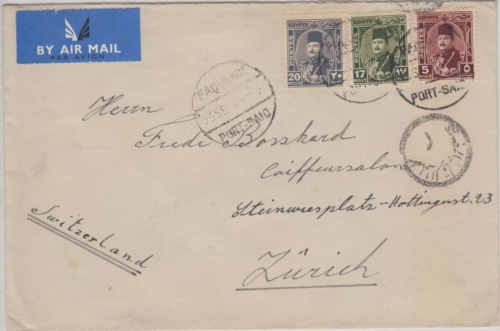 BY AIR MAIL
PAR AVION
EGYPTE
POSTES
20 ٢٠
EGYPTE
POSTES
17 ١٧
EGYPTE
POSTES
5 ٥
PAQUEBOT
PORT-SAID
PORT-SAID
Herrn
Frede Bosshard
Coiffeursalon
Steinwiesplatz-Hottingerst. 23
Zürich
Switzerland